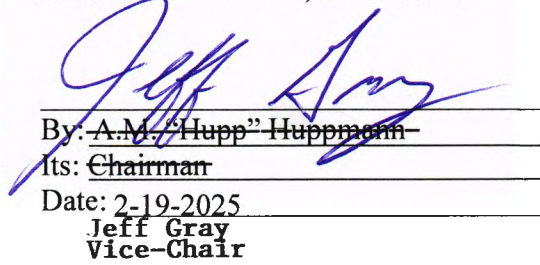 Jeff Gray
By: A.M. "Hupp" Huppmann
Its: Chairman
Date: 2-19-2025
Jeff Gray
Vice-Chair